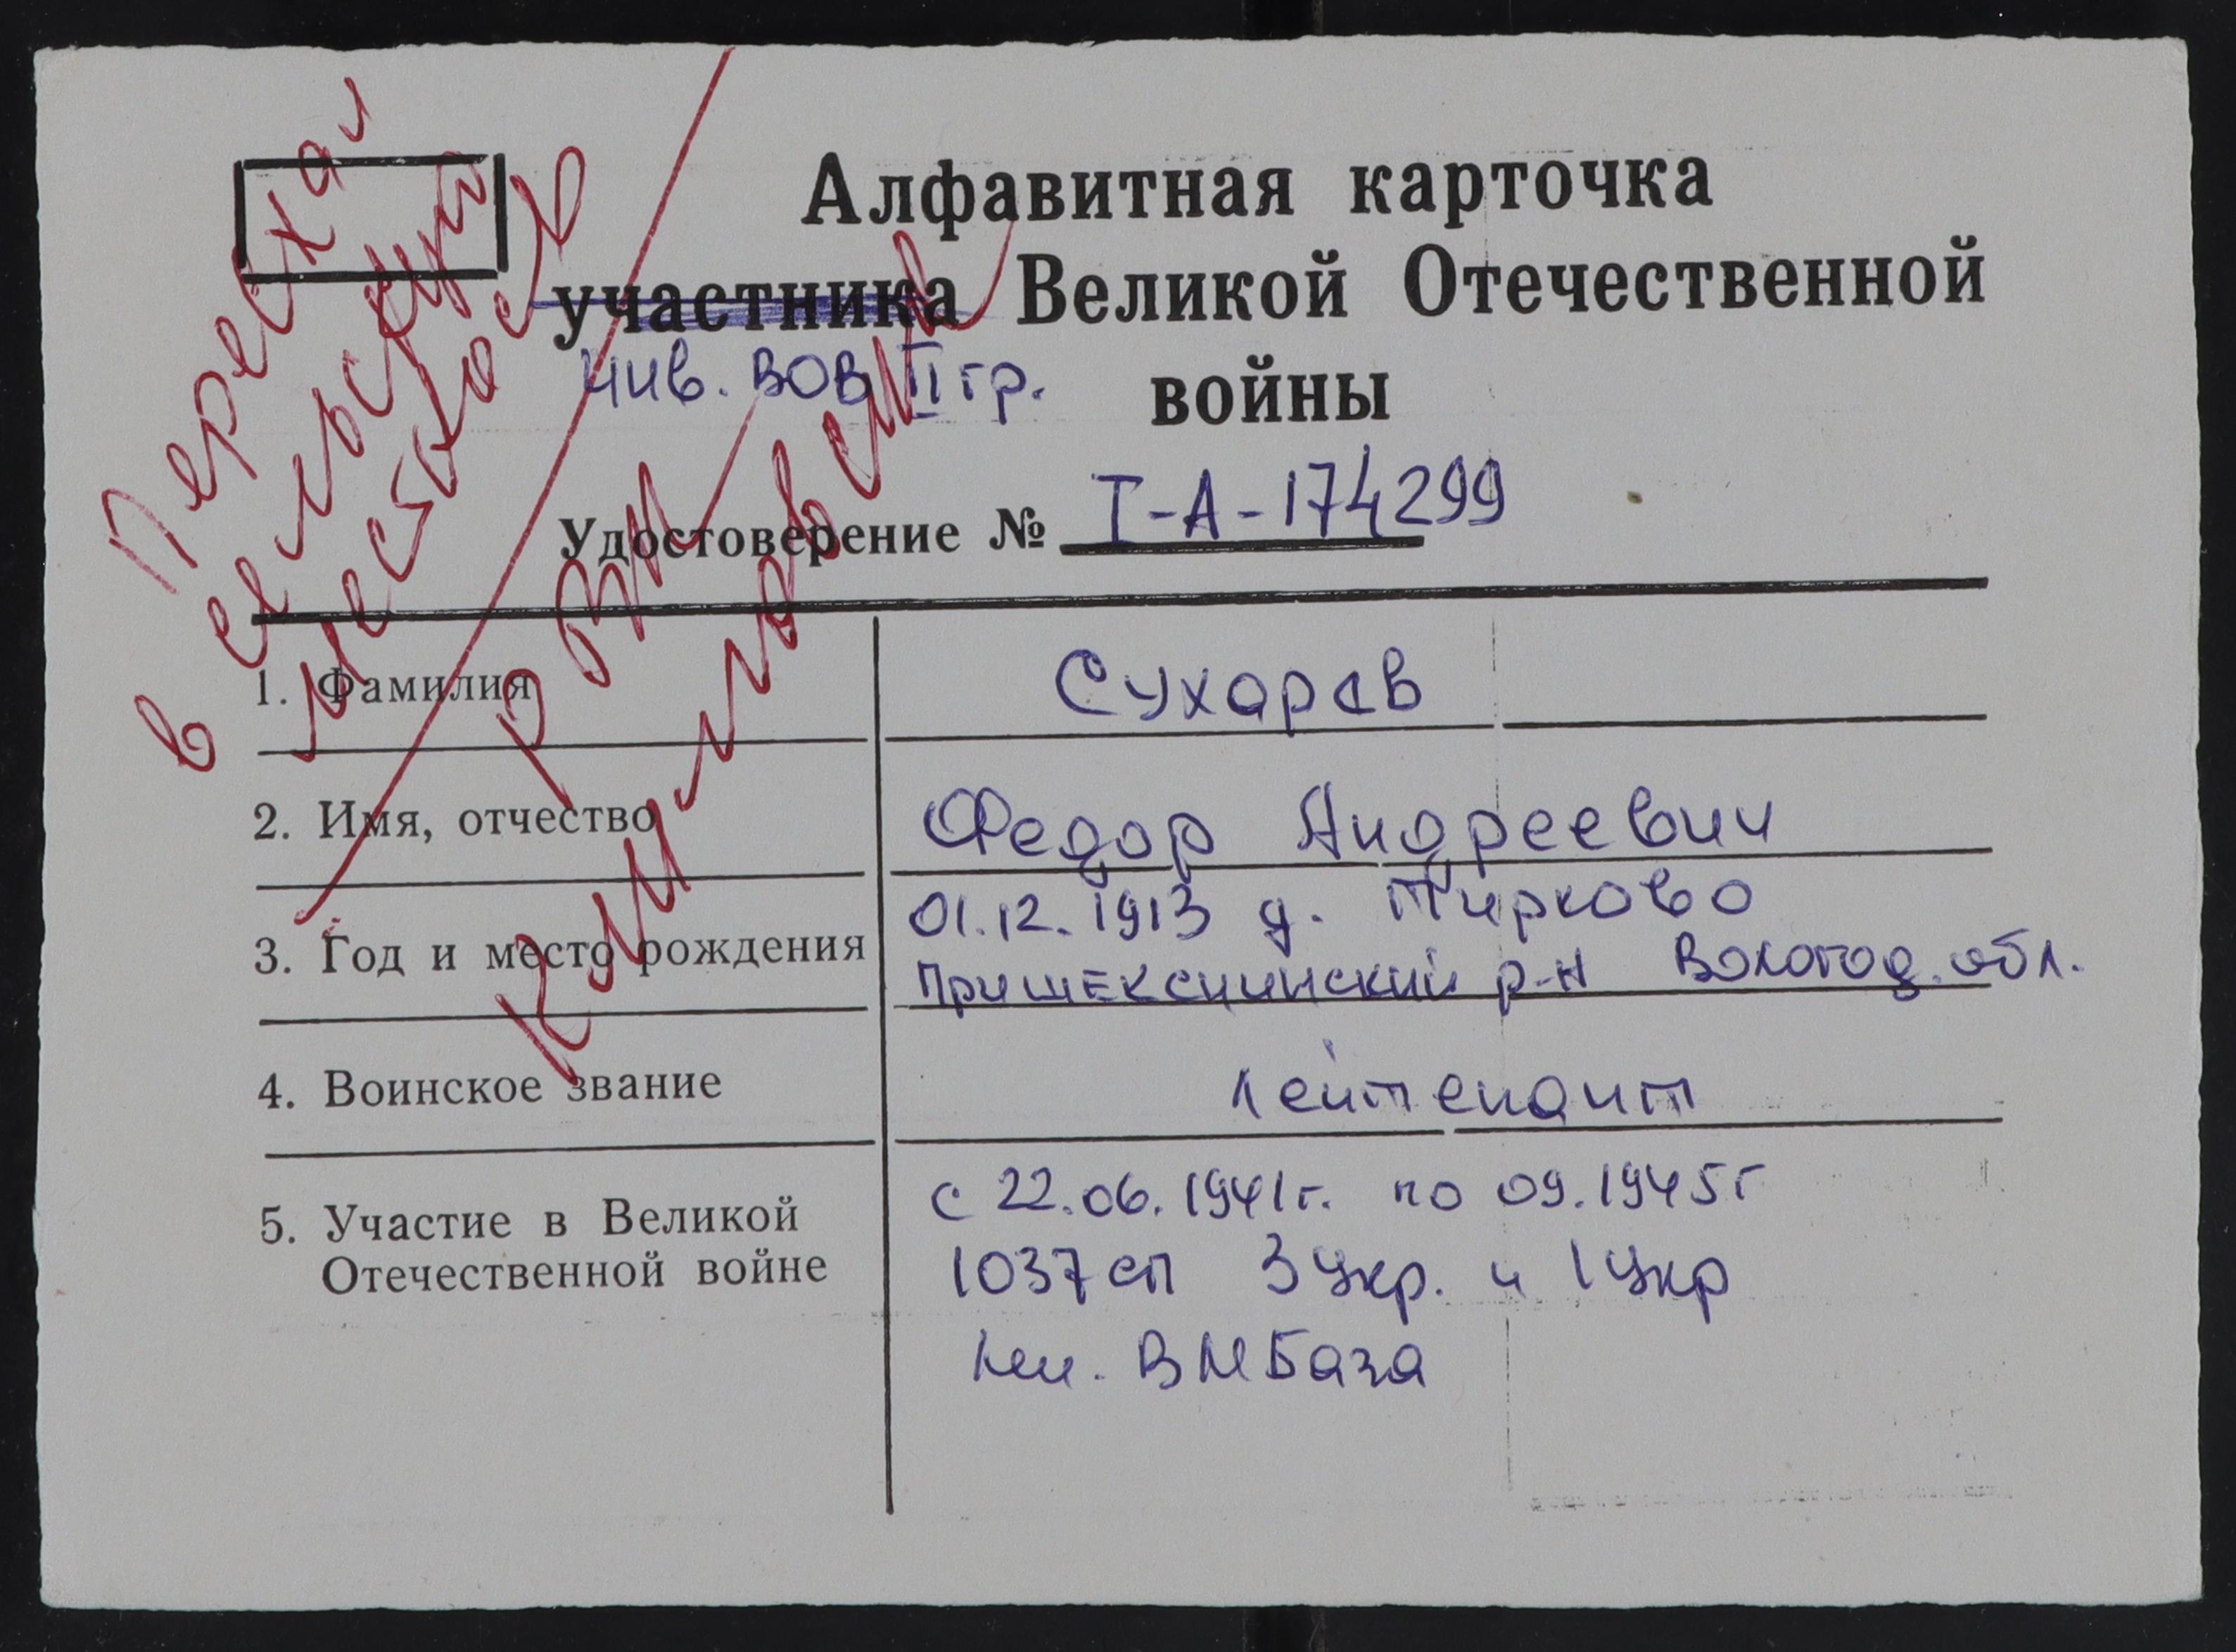 Алфавитная карточка
участника Великой Отечественной
инв. ВОВ II гр. войны
Удостоверение № I-А-174299
Переехал
в сельскую
местность
1. Фамилия Сухарев
2. Имя, отчество Федор Андреевич
3. Год и место рождения 01.12.1913 д. Тирково
Пришекснинский р-н Вологод. обл.
4. Воинское звание лейтенант
5. Участие в Великой
Отечественной войне
с 22.06.1941г. по 09.1945г
1037 сп 3 Укр. и 1 Укр
ВМБаза